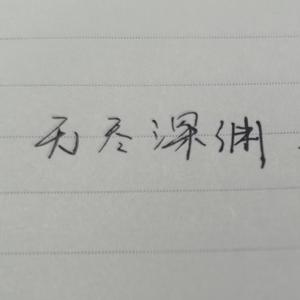 无尽深渊